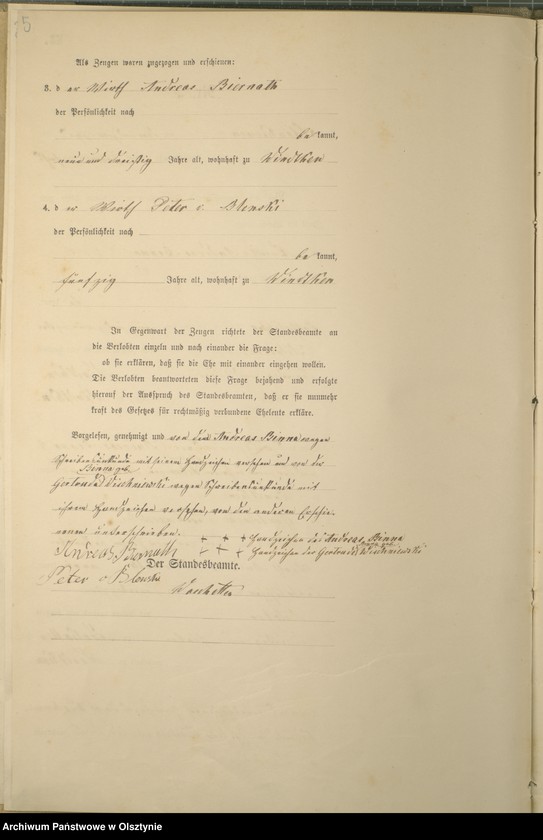 5
Als Zeugen waren zugezogen und erschienen:
3. d er Wirth Andreas Biernath
der Persönlichkeit nach
be kannt,
neun und dreißig Jahre alt, wohnhaft zu Windtken
4. d er Wirth Peter v. Blonski
der Persönlichkeit nach
be kannt,
fünfzig Jahre alt, wohnhaft zu Windtken
In Gegenwart der Zeugen richtete der Standesbeamte an
die Verlobten einzeln und nach einander die Frage:
ob sie erklären, daß sie die Ehe mit einander eingehen wollen.
Die Verlobten beantworteten diese Frage bejahend und erfolgte
hierauf der Ausspruch des Standesbeamten, daß er sie nunmehr
kraft des Gesetzes für rechtmäßig verbundene Eheleute erkläre.
Vorgelesen, genehmigt und von dem Andreas Binna wegen
Schreibensunkunde mit seinem Handzeichen versehen und von der
Binna geb.
Gertrude Wischniewski wegen Schreibensunkunde mit
ihrem Handzeichen versehen, von den anderen Erschie-
nenen unterschrieben.
+ + + Handzeichen des Andreas Binna
Andreas Biernath + + + Handzeichen der Gertrude Binna geb. Wischniewski
Der Standesbeamte.
Peter v Blonski
Archiwum Państwowe w Olsztynie